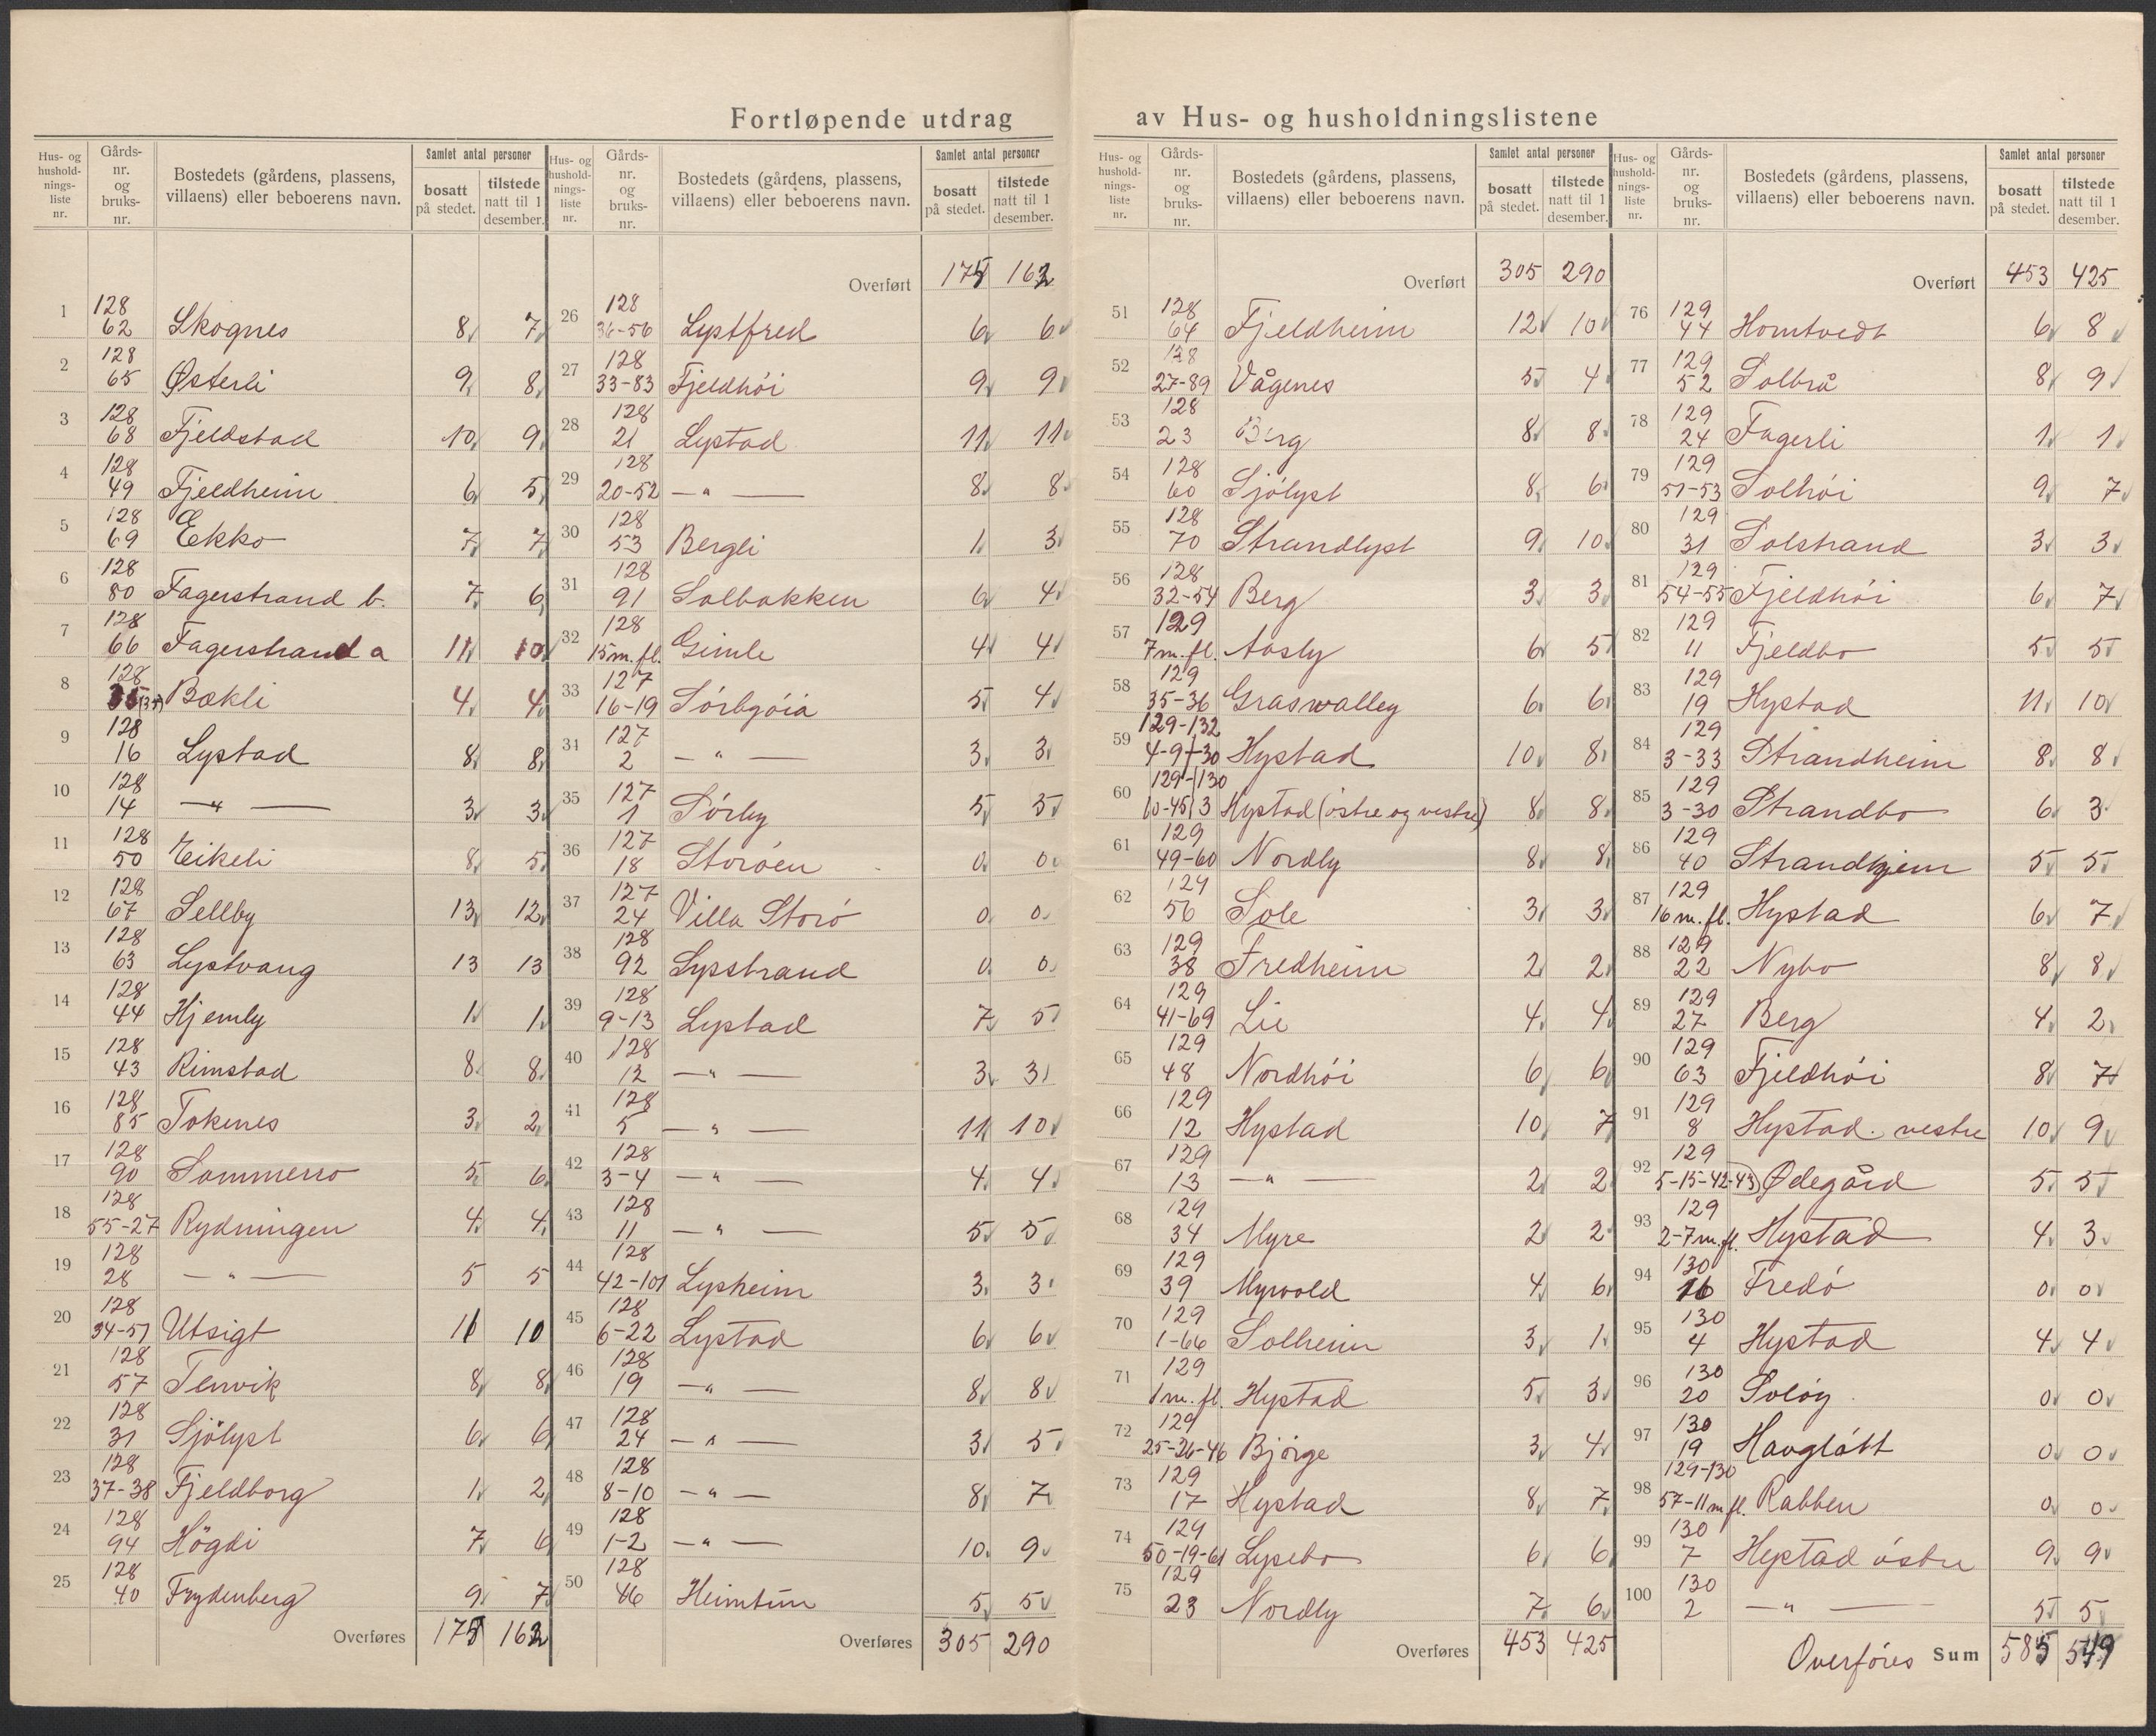 Fortløpende utdrag av Hus- og husholdningslistene
Hus- og husholdnings-liste nr. | Gårds-nr. og bruks-nr. | Bostedets (gårdens, plassens, villaens) eller beboerens navn. | Samlet antal personer: bosatt på stedet. | tilstede natt til 1 desember.
1 | 128 62 | Skognes | 8 | 7
2 | 128 65 | Østerli | 9 | 8
3 | 128 68 | Fjeldstad | 10 | 9
4 | 128 49 | Fjeldheim | 6 | 5
5 | 128 69 | Ekko | 7 | 7
6 | 128 80 | Fagerstrand b. | 7 | 6
7 | 128 66 | Fagerstrand a | 11 | 10
8 | 128 | Bakli | 4 | 4
9 | 128 16 | Lystad | 8 | 8
10 | 128 14 | — " — | 3 | 3
11 | 128 50 | Eikeli | 8 | 5
12 | 128 67 | Sellby | 13 | 12
13 | 128 63 | Lystvang | 13 | 13
14 | 128 44 | Hjemly | 1 | 1
15 | 128 43 | Rimstad | 8 | 8
16 | 128 85 | Tokenes | 3 | 2
17 | 128 90 | Sommerro | 5 | 6
18 | 128 55-27 | Rydningen | 4 | 4
19 | 128 28 | — " — | 5 | 5
20 | 128 34-51 | Utsigt | 11 | 10
21 | 128 57 | Tenvik | 8 | 8
22 | 128 31 | Sjölyst | 6 | 6
23 | 128 37-38 | Fjeldborg | 1 | 2
24 | 128 94 | Högdi | 7 | 6
25 | 128 40 | Frydenberg | 9 | 7
Overføres 175 162
Hus- og husholdnings-liste nr. | Gårds-nr. og bruks-nr. | Bostedets (gårdens, plassens, villaens) eller beboerens navn. | Samlet antal personer: bosatt på stedet. | tilstede natt til 1 desember.
Overført 175 162
26 | 128 36-56 | Lystfred | 6 | 6
27 | 128 33-83 | Fjeldhöi | 9 | 9
28 | 128 21 | Lystad | 11 | 11
29 | 128 20-52 | — " — | 8 | 8
30 | 128 53 | Bergli | 1 | 3
31 | 128 91 | Solbakken | 6 | 4
32 | 128 15 m. fl. | Gimle | 4 | 4
33 | 127 16-19 | Sörbyöia | 5 | 4
34 | 127 2 | — " — | 3 | 3
35 | 127 1 | Sörby | 5 | 5
36 | 127 18 | Storöen | 0 | 0
37 | 127 24 | Villa Storö | 0 | 0
38 | 128 92 | Lysstrand | 0 | 0
39 | 128 9-13 | Lystad | 7 | 5
40 | 128 12 | — " — | 3 | 3
41 | 128 5 | — " — | 11 | 10
42 | 128 3-4 | — " — | 4 | 4
43 | 128 11 | — " — | 5 | 5
44 | 128 42-101 | Lysheim | 3 | 3
45 | 128 6-22 | Lystad | 6 | 6
46 | 128 19 | — " — | 8 | 8
47 | 128 24 | — " — | 3 | 5
48 | 128 8-10 | — " — | 8 | 7
49 | 128 1-2 | — " — | 10 | 9
50 | 128 46 | Heimtun | 5 | 5
Overføres 305 290
Hus- og husholdnings-liste nr. | Gårds-nr. og bruks-nr. | Bostedets (gårdens, plassens, villaens) eller beboerens navn. | Samlet antal personer: bosatt på stedet. | tilstede natt til 1 desember.
Overført 305 290
51 | 128 64 | Fjeldheim | 12 | 10
52 | 128 27-89 | Vågenes | 5 | 4
53 | 128 23 | Berg | 8 | 8
54 | 128 60 | Sjölyst | 8 | 6
55 | 128 70 | Strandlyst | 9 | 10
56 | 128 32-54 | Berg | 3 | 3
57 | 129 7 m. fl. | Aasly | 6 | 5
58 | 129 35-36 | Graswalley | 6 | 6
59 | 129-132 4-9+30 | Hystad | 10 | 8
60 | 129-130 10-45 3 | Hystad (östre og vestre) | 8 | 8
61 | 129 49-60 | Nordly | 8 | 8
62 | 129 56 | Sole | 3 | 3
63 | 129 38 | Fredheim | 2 | 2
64 | 129 41-69 | Lie | 4 | 4
65 | 129 48 | Nordhöi | 6 | 6
66 | 129 12 | Hystad | 10 | 7
67 | 129 13 | — " — | 2 | 2
68 | 129 34 | Myre | 2 | 2
69 | 129 39 | Myrvold | 4 | 6
70 | 129 1-66 | Solheim | 3 | 1
71 | 129 1 m. fl. | Hystad | 5 | 3
72 | 129 25-26-46 | Björge | 3 | 4
73 | 129 17 | Hystad | 8 | 7
74 | 129 50-19-61 | Lysebo | 6 | 6
75 | 129 23 | Nordly | 7 | 6
Overføres 453 425
Hus- og husholdnings-liste nr. | Gårds-nr. og bruks-nr. | Bostedets (gårdens, plassens, villaens) eller beboerens navn. | Samlet antal personer: bosatt på stedet. | tilstede natt til 1 desember.
Overført 453 425
76 | 129 44 | Homtvedt | 6 | 8
77 | 129 52 | Solbrå | 8 | 9
78 | 129 24 | Fagerli | 1 | 1
79 | 129 51-53 | Solhöi | 9 | 7
80 | 129 31 | Solstrand | 3 | 3
81 | 129 54-55 | Fjeldhöi | 6 | 7
82 | 129 11 | Fjeldbo | 5 | 5
83 | 129 19 | Hystad | 11 | 10
84 | 129 3-33 | Strandheim | 8 | 8
85 | 129 3-30 | Strandbo | 6 | 3
86 | 129 40 | Strandhjem | 5 | 5
87 | 129 16 m. fl. | Hystad | 6 | 7
88 | 129 22 | Nybo | 8 | 8
89 | 129 27 | Berg | 4 | 2
90 | 129 63 | Fjeldhöi | 8 | 7
91 | 129 8 | Hystad vestre | 10 | 9
92 | 129 5-15-42-43 | Ødegård | 5 | 5
93 | 129 2-7 m. fl. | Hystad | 4 | 3
94 | 130 16 | Fredö | 0 | 0
95 | 130 4 | Hystad | 4 | 4
96 | 130 20 | Soløy | 0 | 0
97 | 130 19 | Havglött | 0 | 0
98 | 129-130 57-11 m fl. | Rabben | 0 | 0
99 | 130 7 | Hystad östre | 9 | 9
100 | 130 2 | — " — | 5 | 5
Overføres Sum 585 549